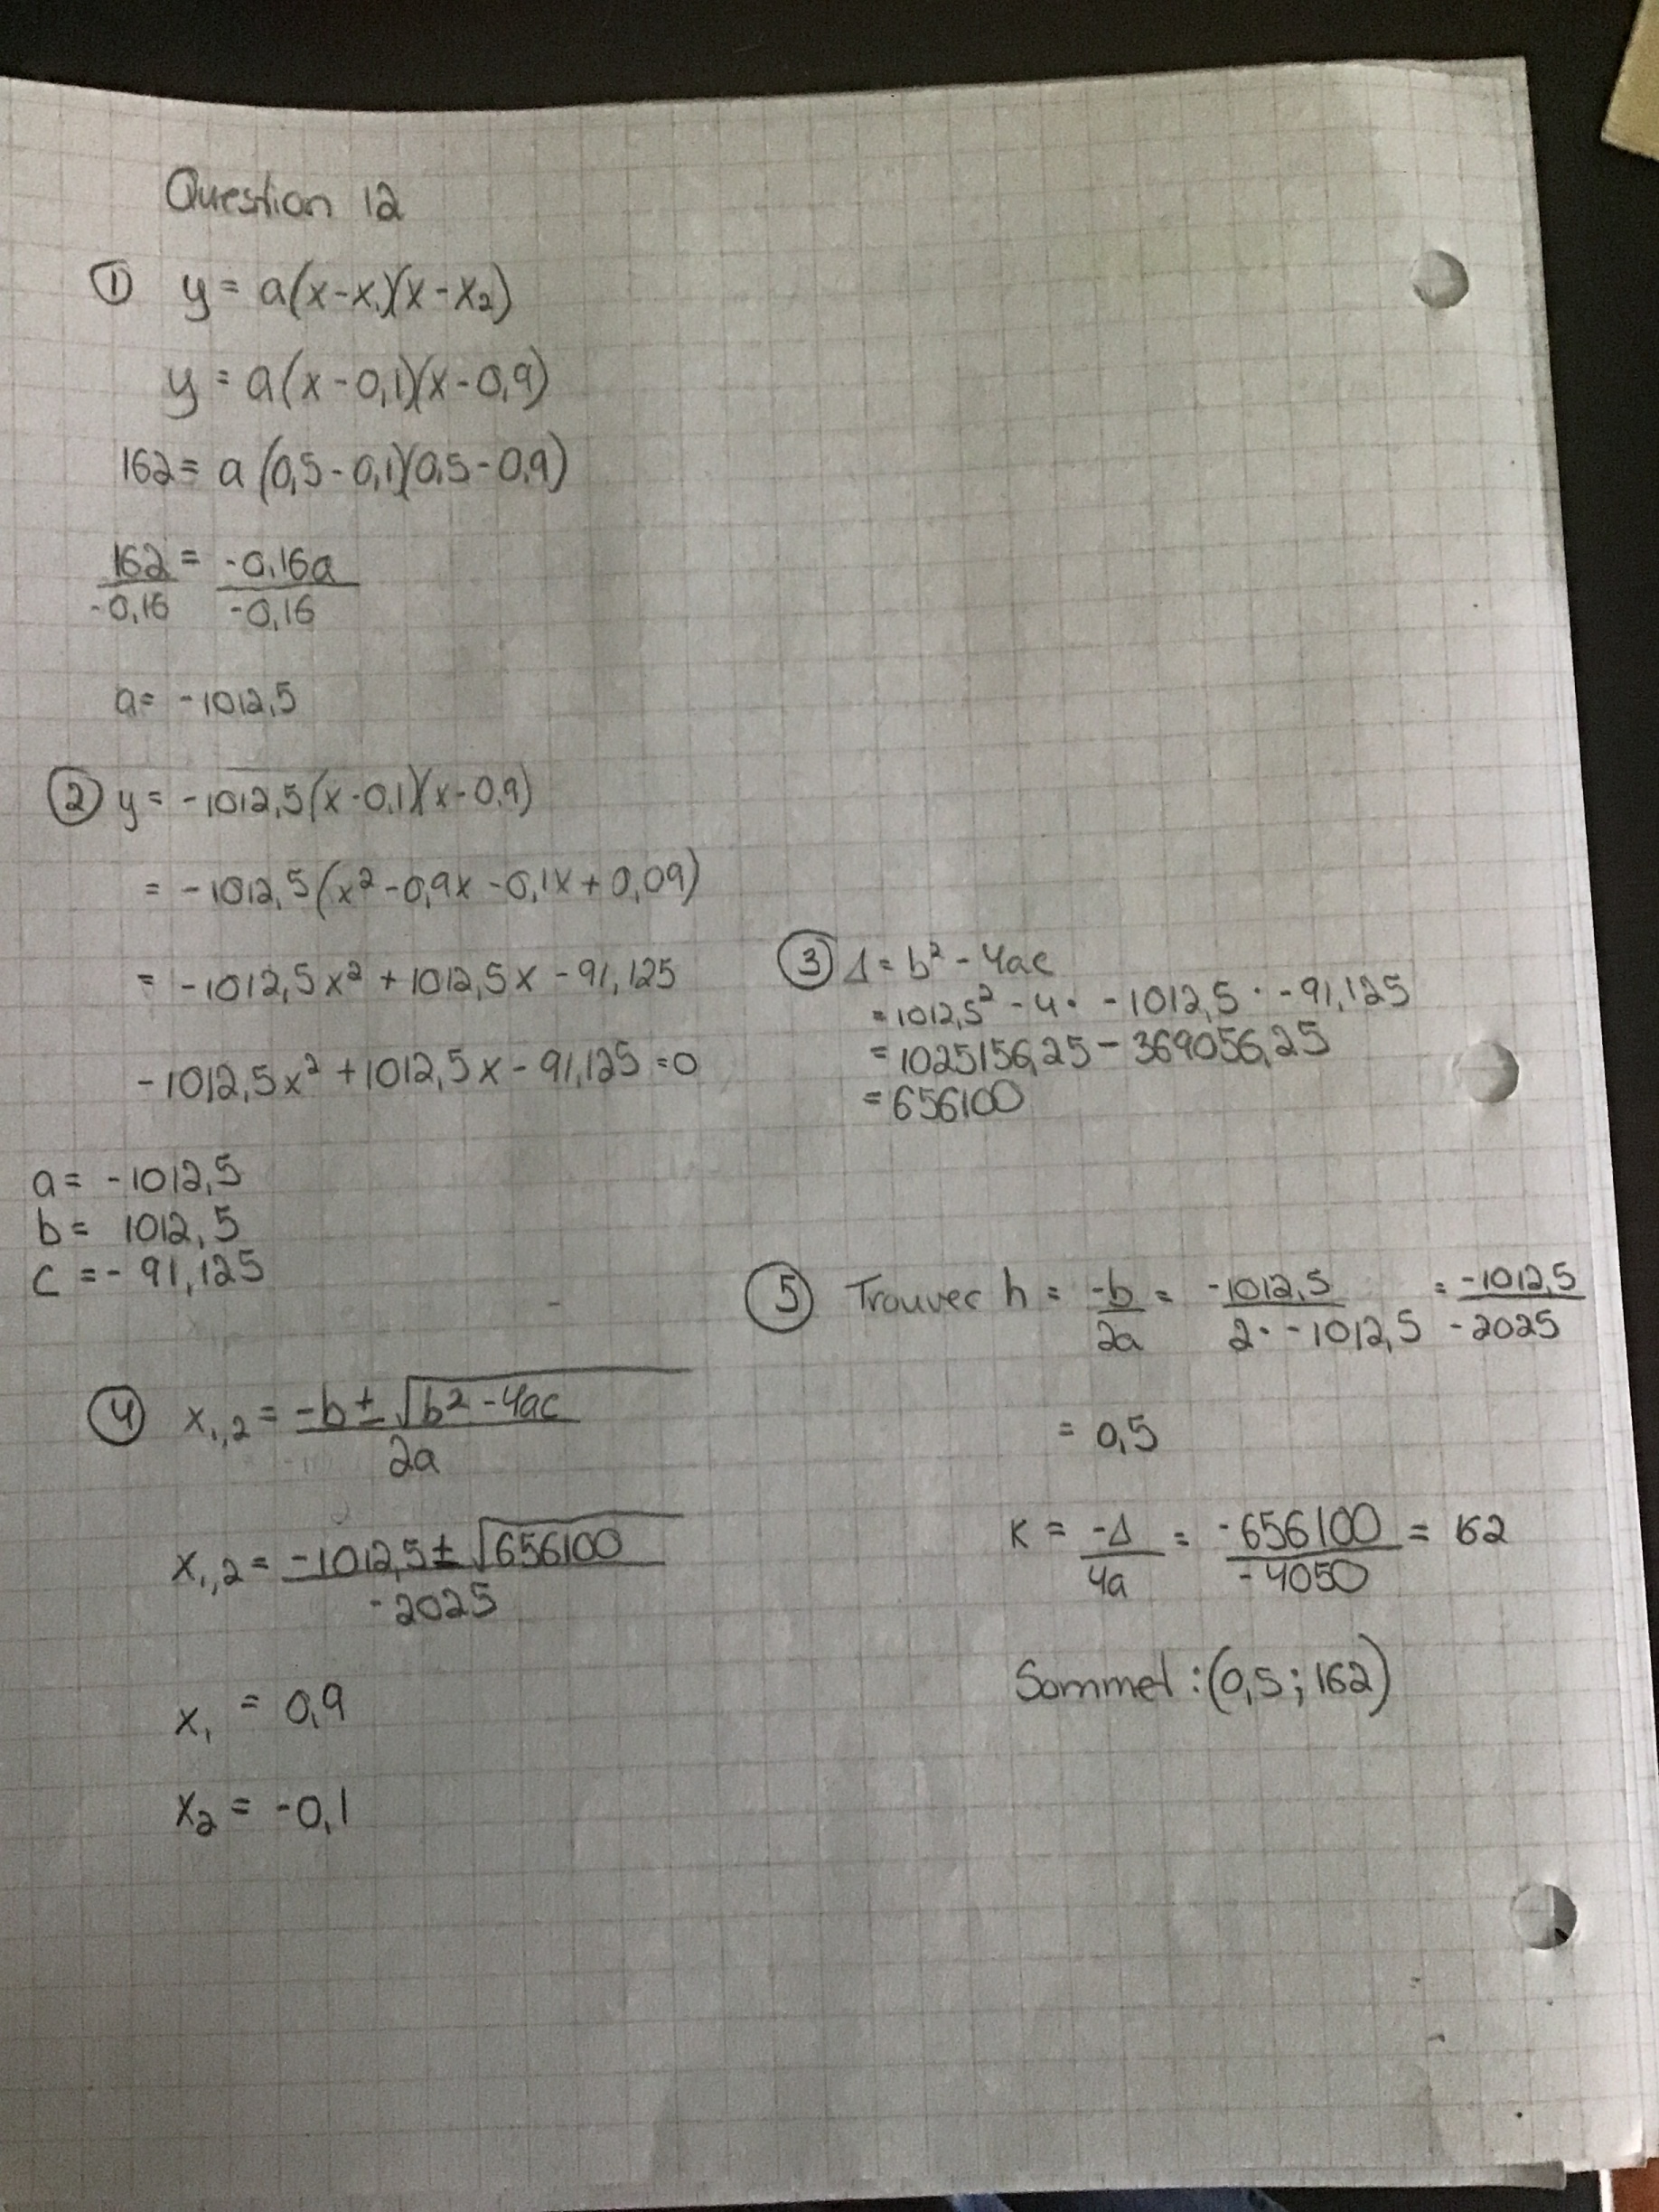 Question 12
① y = a(x-x₁)(x-x₂)
y = a(x-0,1)(x-0,9)
162 = a(0,5-0,1)(0,5-0,9)
162/-0,16 = -0,16a/-0,16
a = -1012,5
② y = -1012,5(x-0,1)(x-0,9)
= -1012,5(x²-0,9x-0,1x+0,09)
= -1012,5x²+1012,5x-91,125
-1012,5x²+1012,5x-91,125=0
a = -1012,5
b = 1012,5
c = -91,125
③ Δ = b²-4ac
= 1012,5²-4· -1012,5 · -91,125
= 1025156,25-369056,25
= 656100
④ x₁,₂ = -b±√b²-4ac / 2a
x₁,₂ = -1012,5±√656100 / -2025
x₁ = 0,9
x₂ = -0,1
⑤ Trouver h = -b/2a = -1012,5 / 2· -1012,5 = -1012,5 / -2025
= 0,5
K = -Δ/4a = -656100 / -4050 = 162
Sommet : (0,5 ; 162)